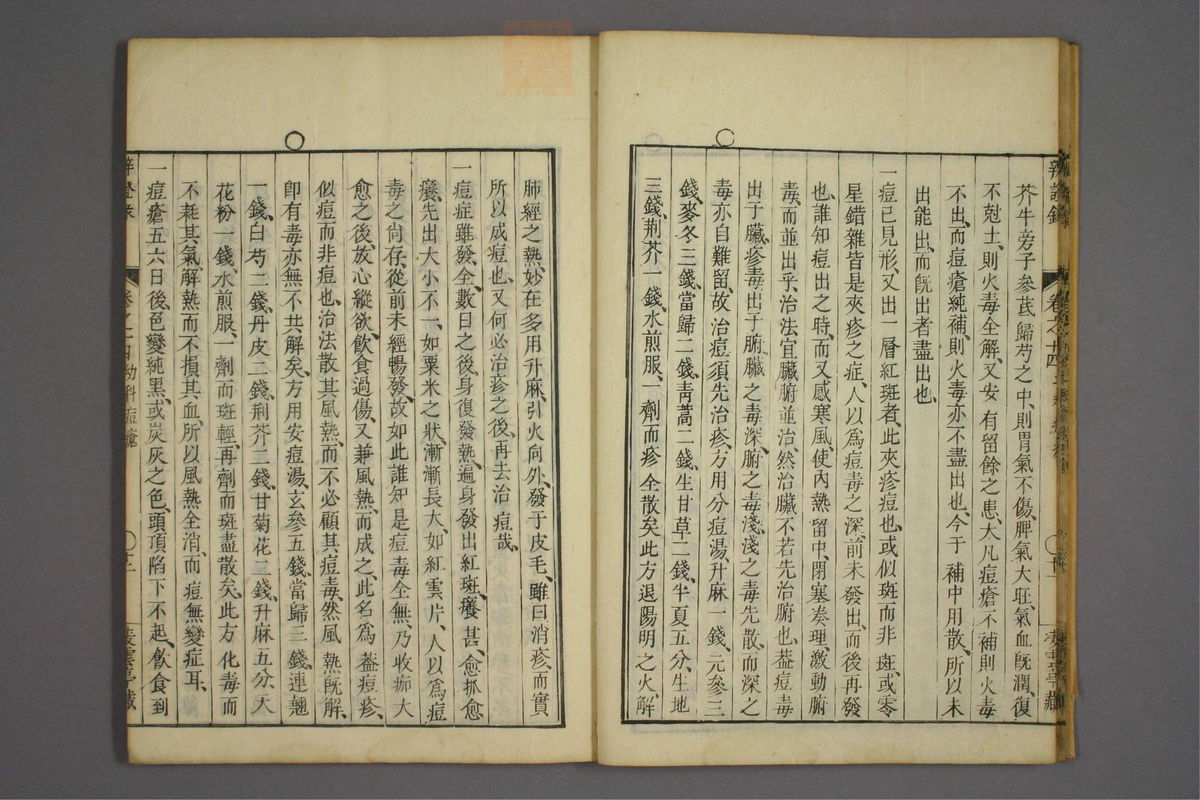 芥牛旁子參芪歸芍之中、則胃氣不傷、脾氣大旺、氣血既潤、復
不尅土、則火毒全解、又安有留餘之患、大凡痘瘡不補則火毒
不出、而痘瘡純補、則火毒亦不盡出也、今于補中用散、所以未
出能出、而既出者盡出也、
一痘已見形、又出一層紅斑者、此夾疹痘也、或似斑而非斑、或零
星錯雜皆是夾疹之症、人以爲痘毒之深、前未發出、而後再發
也、誰知痘出之時、而又感寒風、使內熱留中、閉塞奏理、激動腑
毒、而並出乎、治法宜臟腑並治、然治臟不若先治腑也、葢痘毒
出于臟、疹毒出于腑、臟之毒深、腑之毒淺、淺之毒先散、而深之
毒亦自難留、故治痘須先治疹、方用分痘湯、升麻一錢、元參三
錢、麥冬三錢、當歸二錢、靑蒿二錢、生甘草二錢、半夏五分、生地
三錢、荆芥一錢、水煎服、一劑而疹全散矣、此方退陽明之火、解
肺經之熱、妙在多用升麻、引火向外、發于皮毛、雖曰消疹、而實
所以成痘也、又何必治疹之後、再去治痘哉、
一痘症雖發全、數日之後、身復發熱、遍身發出紅斑、癢甚、愈抓愈
癢、先出大小不一、如粟米之狀、漸漸長大、如紅雲片、人以爲痘
毒之尙存、從前未經暢發、故如此、誰知是痘毒全無、乃收痂大
愈之後、放心縱欲、飮食過傷、又兼風熱、而成之、此名爲葢痘疹、
似痘而非痘也、治法散其風熱、而不必顧其痘毒、然風熱既解、
卽有毒亦無不共解矣、方用安痘湯、玄參五錢、當歸三錢、連翹
一錢、白芍二錢、丹皮二錢、荆芥二錢、甘菊花二錢、升麻五分、天
花粉一錢、水煎服、一劑而斑輕、再劑而斑盡散矣、此方化毒而
不耗其氣、解熱而不損其血、所以風熱全消、而痘無變症耳、
一痘瘡五六日後、色變純黑、或炭灰之色、頭頂陷下不起、飮食到